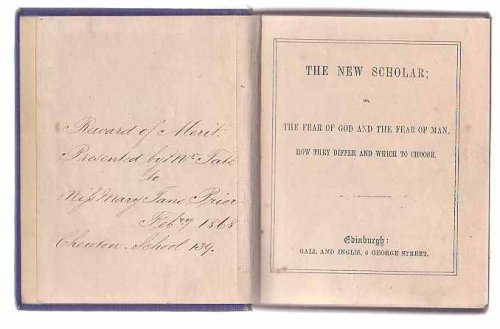 Reward of Merit
Presented by Mr Tate
to
Miss Mary Jane Prior
Feby 1868
School
THE NEW SCHOLAR;
OR,
THE FEAR OF GOD AND THE FEAR OF MAN.
HOW THEY DIFFER AND WHICH TO CHOOSE.
Edinburgh:
GALL AND INGLIS, 6 GEORGE STREET.